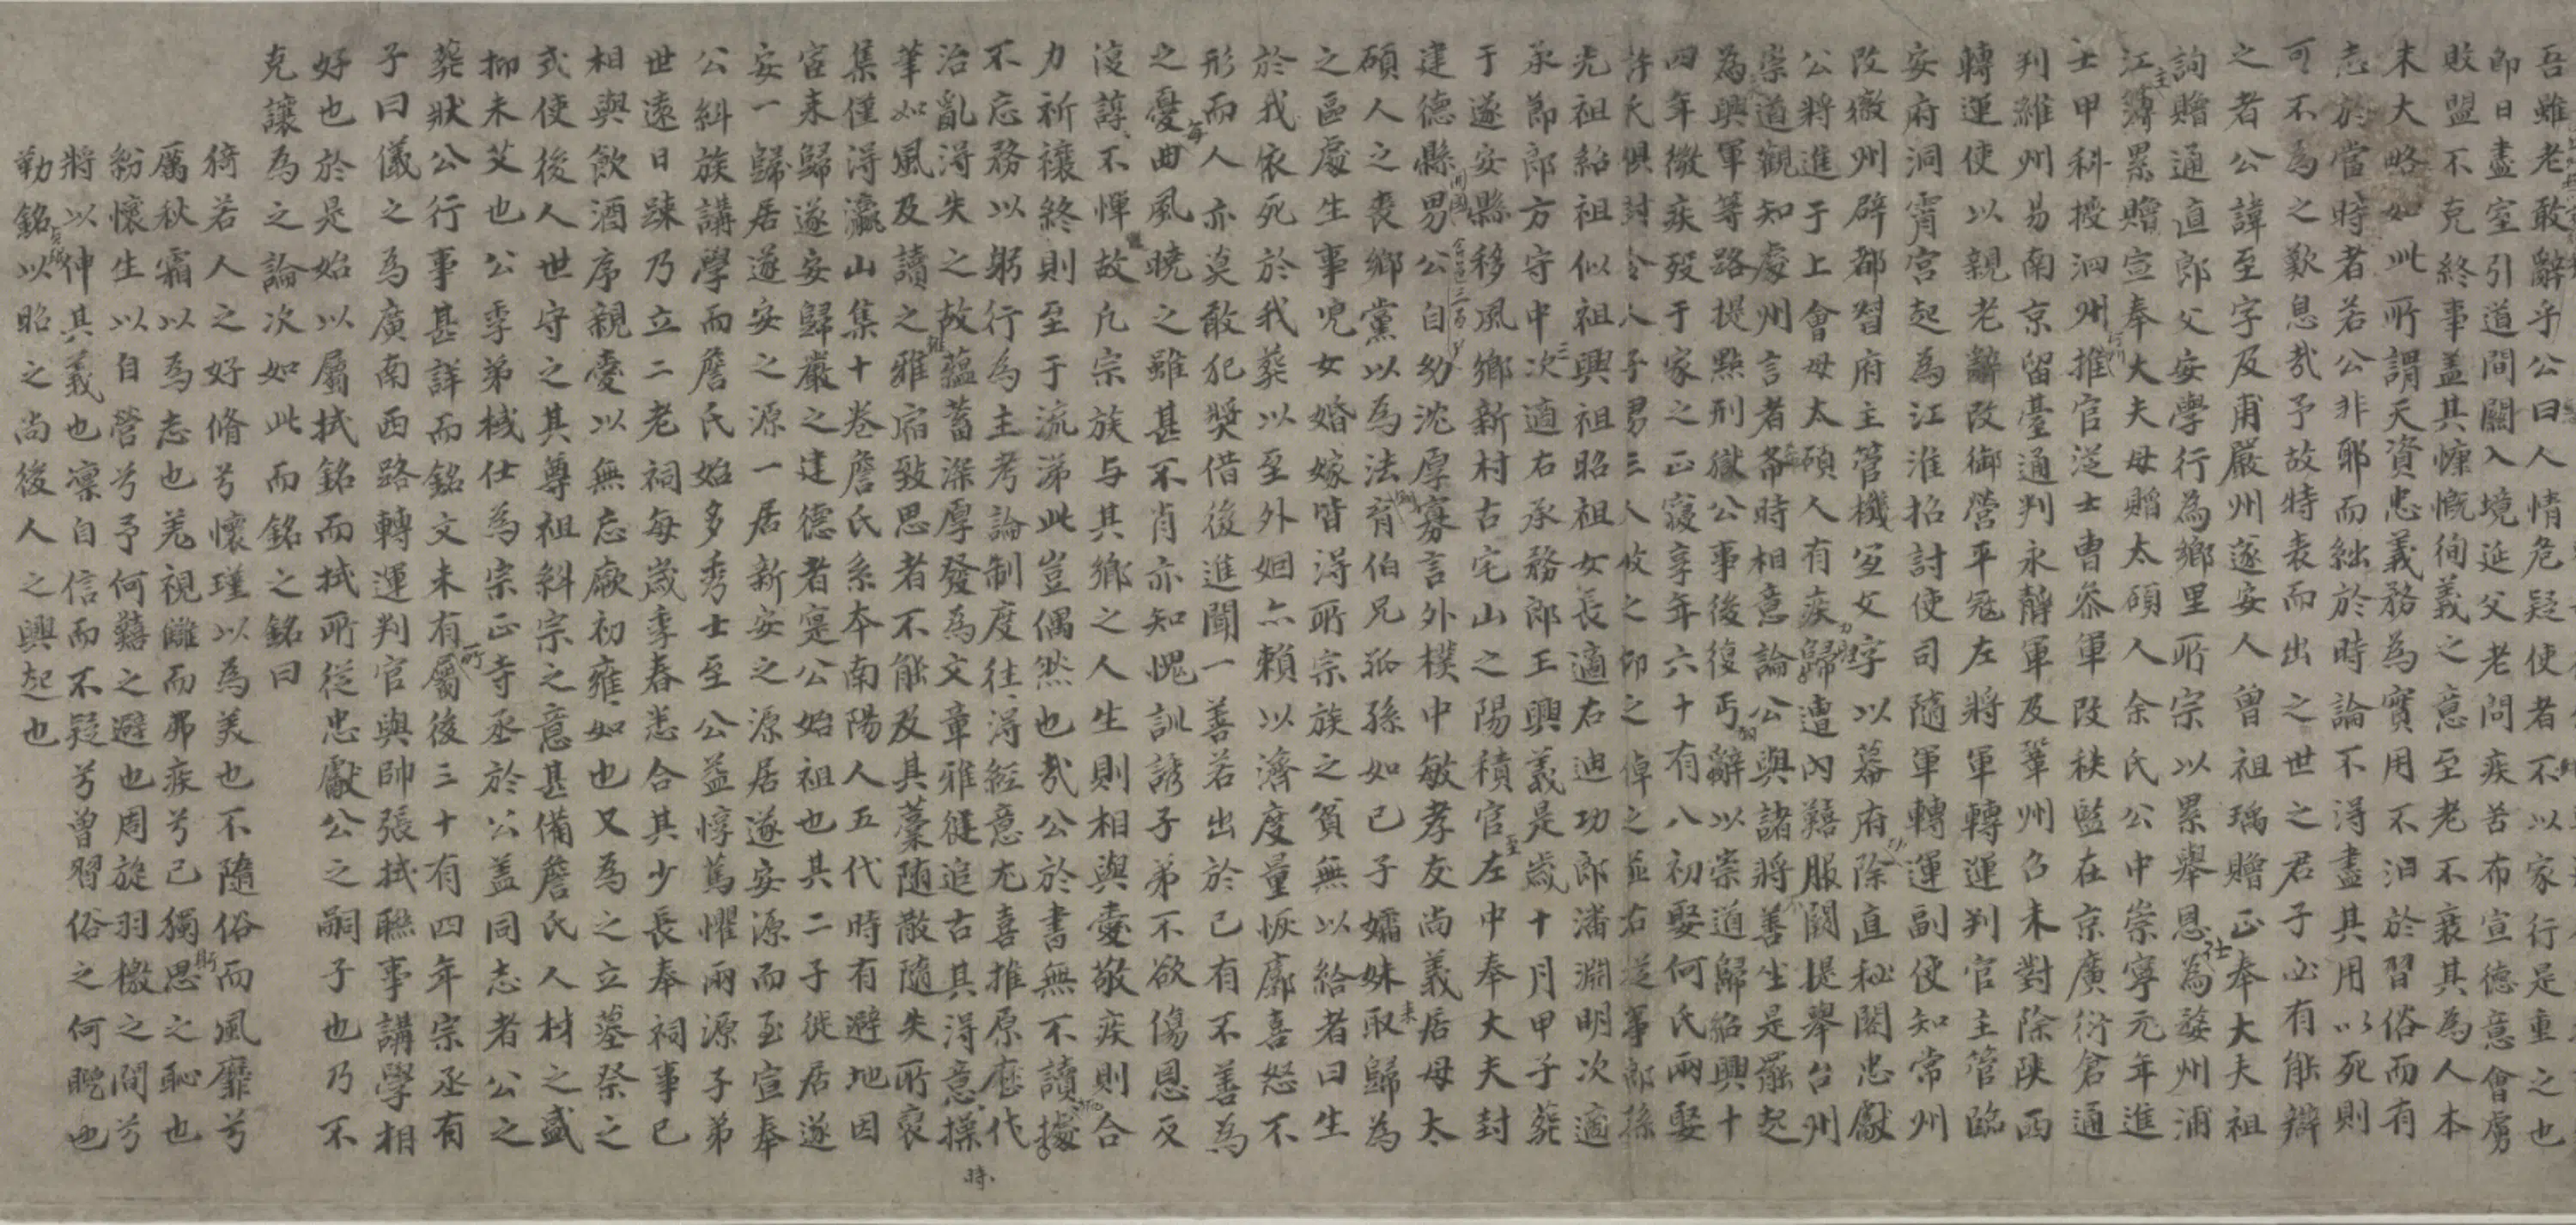 吾雖老敢辭乎公曰人情危疑使者不以家行是重之也
即日盡室引道間關入境延父老問疾苦布宣德意會虜
敗盟不克終事盖其慷慨徇義之意至老不衰其為人本
末大略如此所謂天資忠義務為實用不汩於習俗而有
志於當時者若公非耶而絀於時論不得盡其用以死則
可不為之歎息哉予故特表而出之世之君子必有能辯
之者公諱至字及甫嚴州遂安人曾祖瑀贈正奉大夫祖
詢贈通直郎父安學行為鄉里所宗以累舉恩為婺州浦
江簿累贈宣奉大夫母贈太碩人余氏公中崇寧元年進
士甲科授泗州推官從士曹叅軍改秩監在京廣衍倉通
判維州易南京留臺通判永靜軍及鞏州召未對除陝西
轉運使以親老辭改御營平冦左將軍轉運判官主管臨
安府洞霄宮起為江淮招討使司隨軍轉運副使知常州
改徽州辟都督府主管機宜文字以幕府除直秘閣忠獻
公將進于上會母太碩人有疾歸遭內艱服闋提舉台州
崇道觀知處州言者希時相意論公與諸將善坐是罷起
為興軍等路提點刑獄公事後復丐辭以崇道歸紹興十
四年微疾歿于家之正寢享年六十有八初娶何氏兩娶
許氏俱封令人子男三人攸之卹之倬之並右從事郎孫
光祖紹祖似祖興祖昭祖女長適右迪功郎潘淵明次適
承節郎方守中次適右承務郎王興義是歲十月甲子葬
于遂安縣移風鄉新村古宅山之陽積官左中奉大夫封
建德縣男公自幼沈厚寡言外樸中敏孝友尚義居母太
碩人之喪鄉黨以為法育伯兄孤孫如己子孀妹取歸為
之區處生事兒女婚嫁皆得所宗族之貧無以給者曰生
於我依死於我葬以至外姻亦賴以濟度量恢廓喜怒不
形而人亦莫敢犯奬借後進聞一善若出於己有不善為
之憂曲風曉之雖甚不肖亦知愧訓誘子弟不欲傷恩反
復諄不憚故凡宗族与其鄉之人生則相與愛敬疾則合
力祈禳終則至于流涕此豈偶然也哉公於書無不讀據
不忘務以躬行為主考論制度往得經意尤喜推原歷代
治亂得失之故蘊蓄深厚發為文章雅健追古其得意操
筆如風及讀之雅宿致思者不能及其藁隨散隨失所裒
集僅得瀛山集十卷詹氏系本南陽人五代時有避地因
官来歸遂安歸嚴之建德者寔公始祖也其二子徙居遂
安一歸居遂安之源一居新安之源居遂安源而至宣奉
公糾族講學而詹氏始多秀士至公益惇篤懼兩源子弟
世遠日踈乃立二老祠每歲季春悉合其少長奉祠事已
相與飲酒序親愛以無忘厥初雍如也又為之立墓祭之
式使後人世守之其尊祖糾宗之意甚備詹氏人材之盛
抑未艾也公季弟棫仕為宗正寺丞於公盖同志者公之
葬狀公行事甚詳而銘文未有屬後三十有四年宗丞有
子曰儀之為廣南西路轉運判官與帥張拭聯事講學相
好也於是始以屬拭銘而拭所從忠獻公之嗣子也乃不
克讓為之論次如此而銘之銘曰
猗若人之好脩兮懷瑾以為美也不隨俗而風靡兮
厲秋霜以為志也羌視讎而弗疾兮己獨思之恥也
紛懷生以自營兮予何囏之避也周旋羽檄之間兮
將以伸其義也凛自信而不疑兮曾習俗之何睨也
勒銘以昭之尚後人之興起也
時